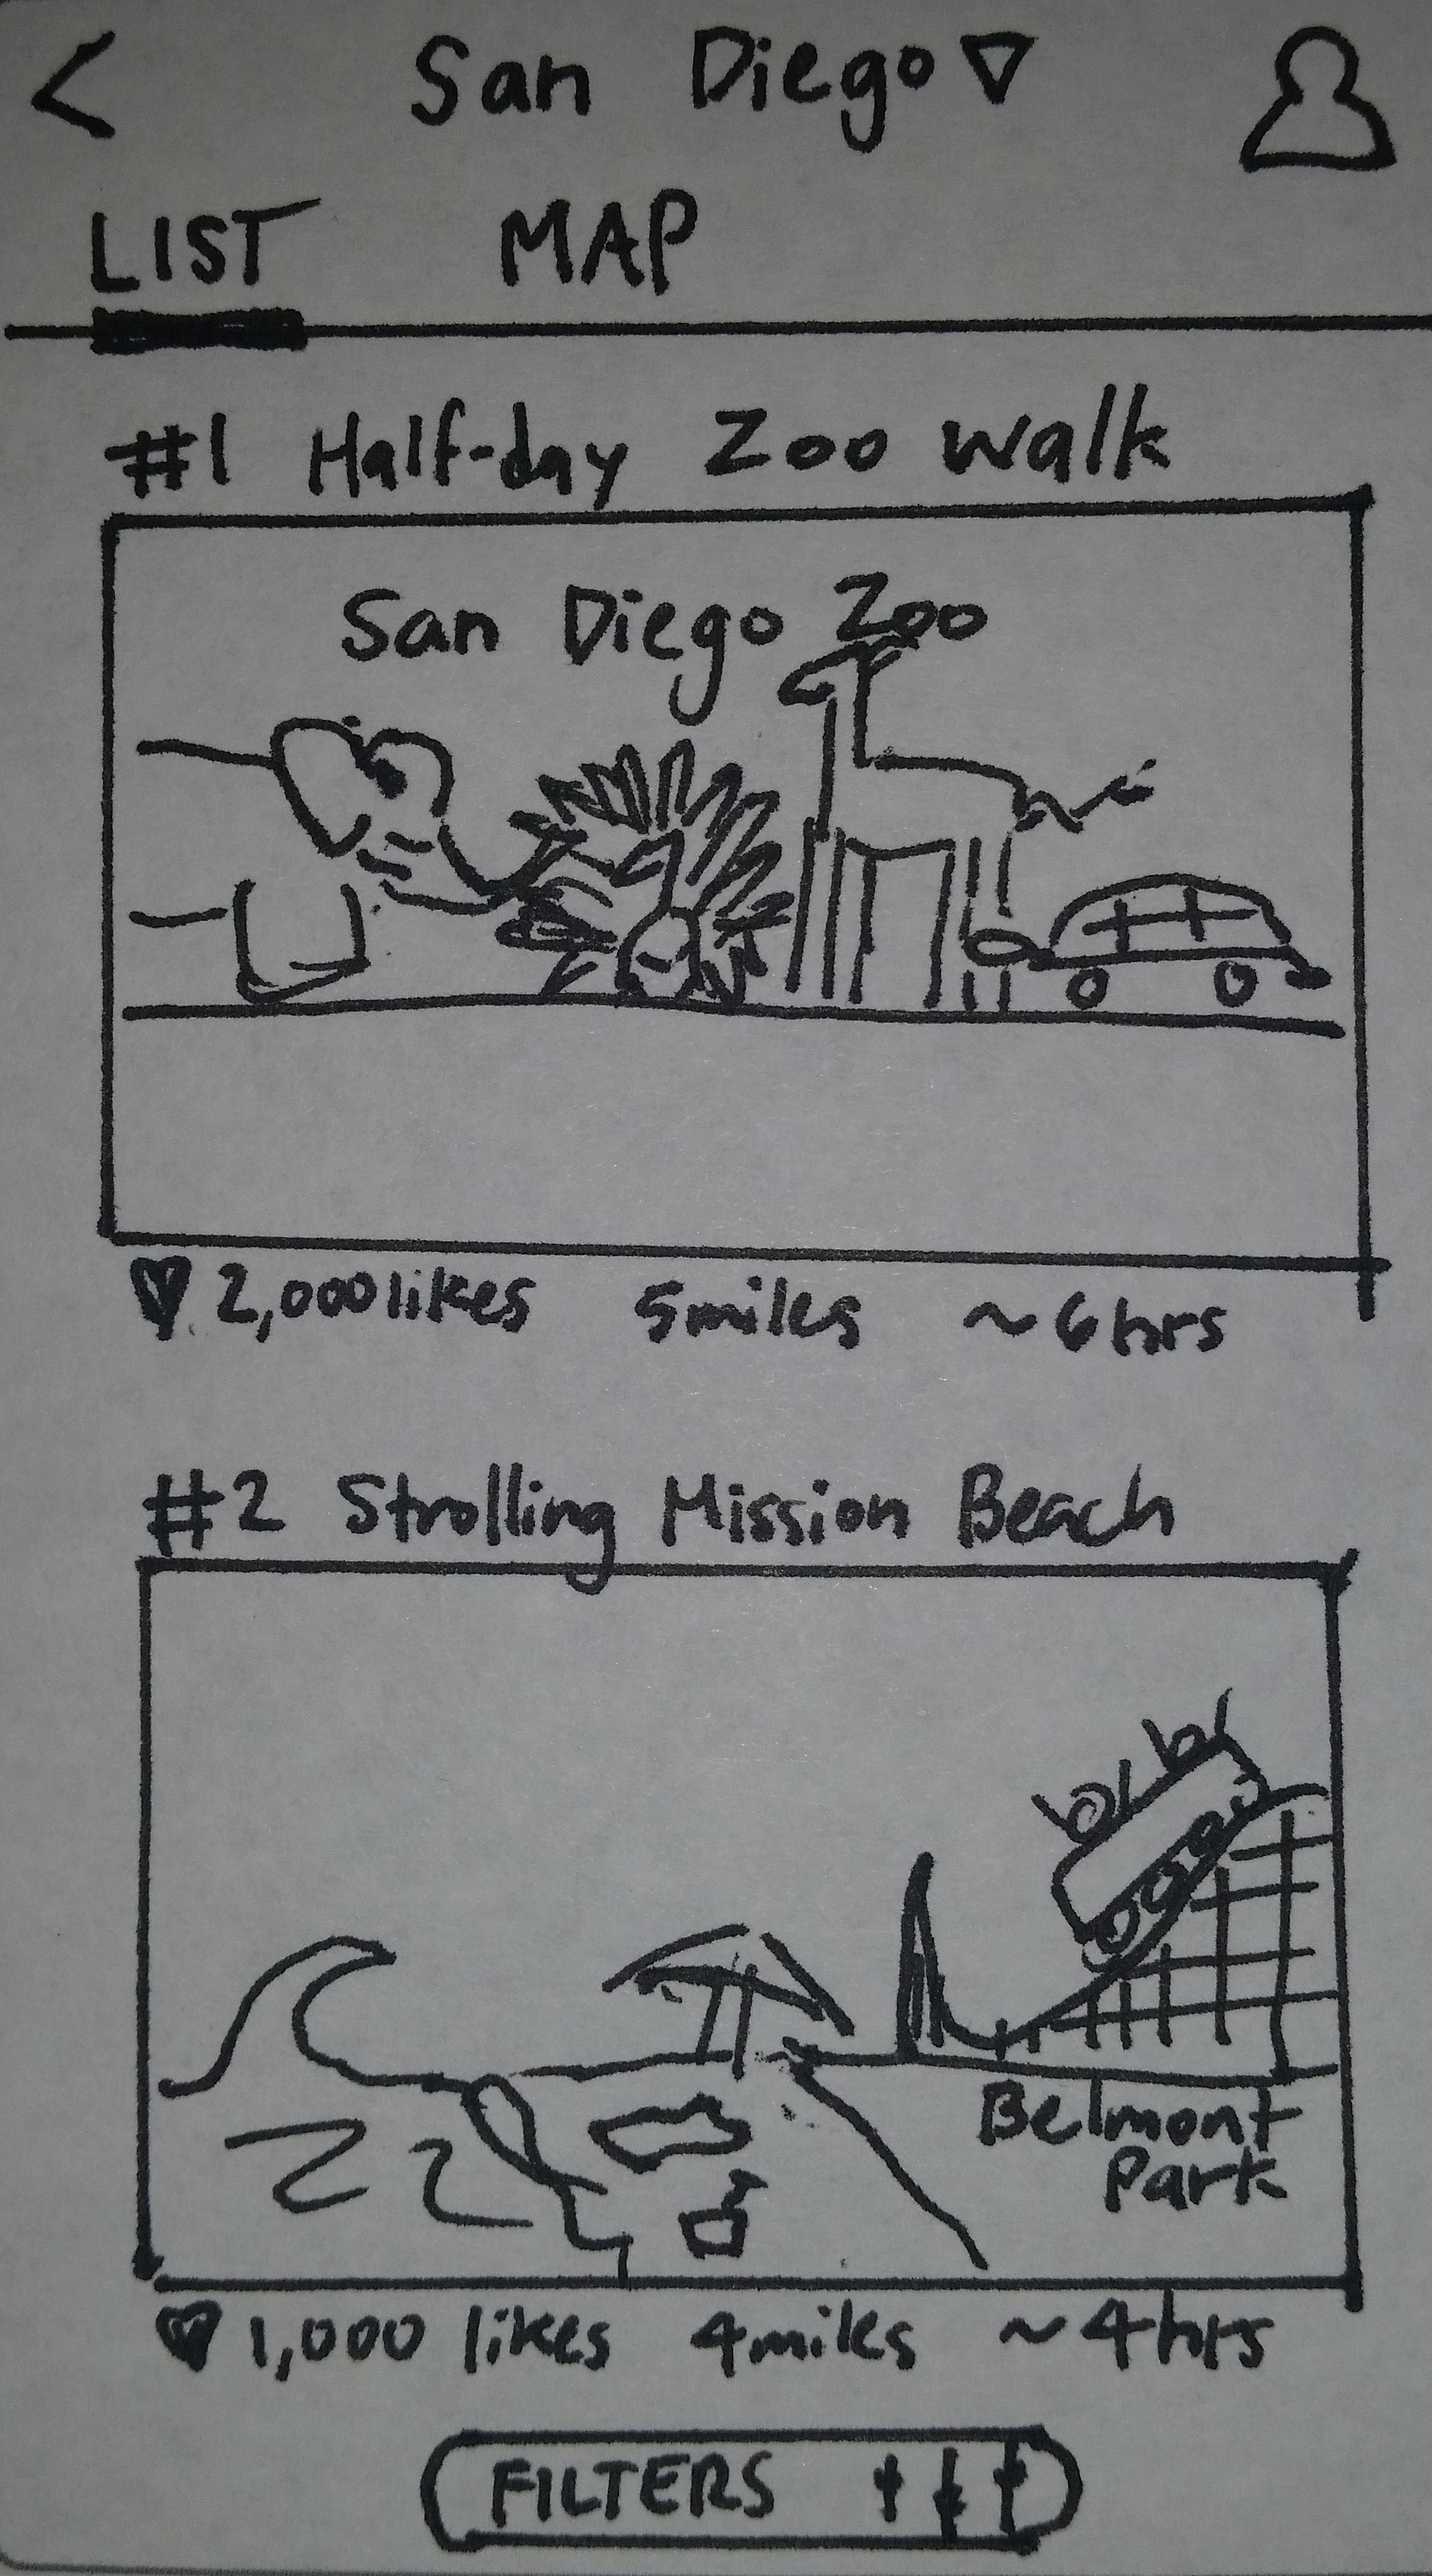 San Diego
LIST MAP
#1 Half-day Zoo walk
San Diego Zoo
2,000 likes 5 miles ~6 hrs
#2 Strolling Mission Beach
Belmont
Park
1,000 likes 4 miles ~4 hrs
FILTERS